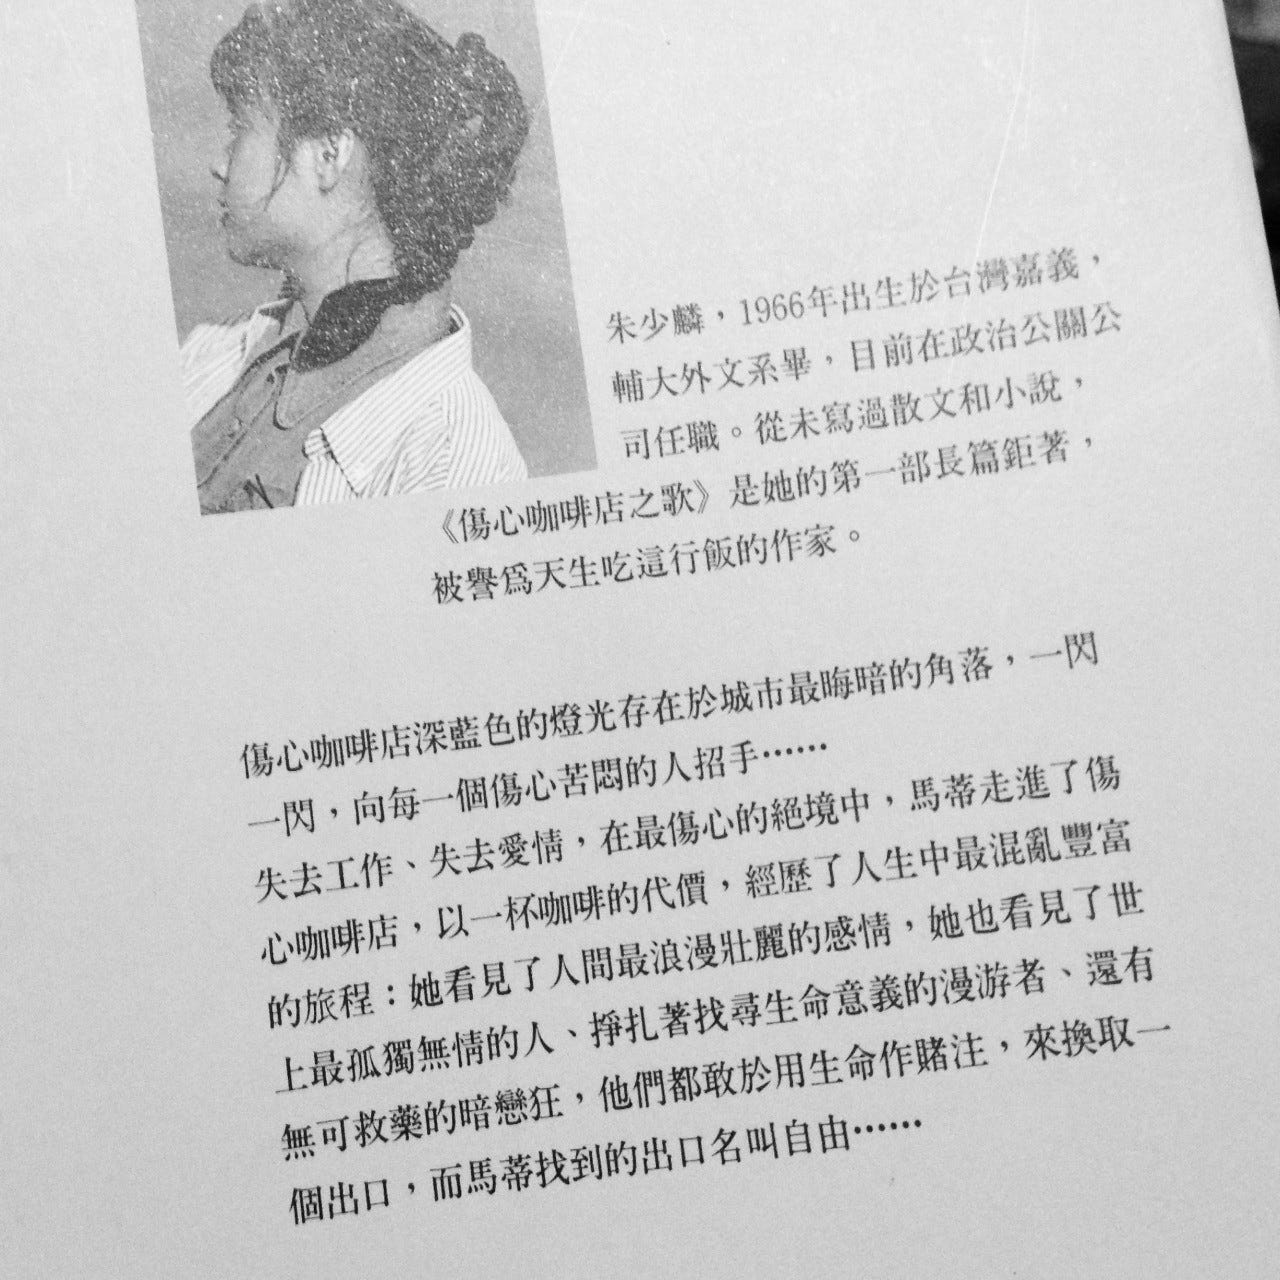 朱少麟，1966年出生於台灣嘉義，
輔大外文系畢，目前在政治公關公
司任職。從未寫過散文和小說，
《傷心咖啡店之歌》是她的第一部長篇鉅著，
被譽爲天生吃這行飯的作家。
傷心咖啡店深藍色的燈光存在於城市最晦暗的角落，一閃
一閃，向每一個傷心苦悶的人招手⋯⋯
失去工作、失去愛情，在最傷心的絕境中，馬蒂走進了傷
心咖啡店，以一杯咖啡的代價，經歷了人生中最混亂豐富
的旅程：她看見了人間最浪漫壯麗的感情，她也看見了世
上最孤獨無情的人、掙扎著找尋生命意義的漫游者、還有
無可救藥的暗戀狂，他們都敢於用生命作賭注，來換取一
個出口，而馬蒂找到的出口名叫自由⋯⋯